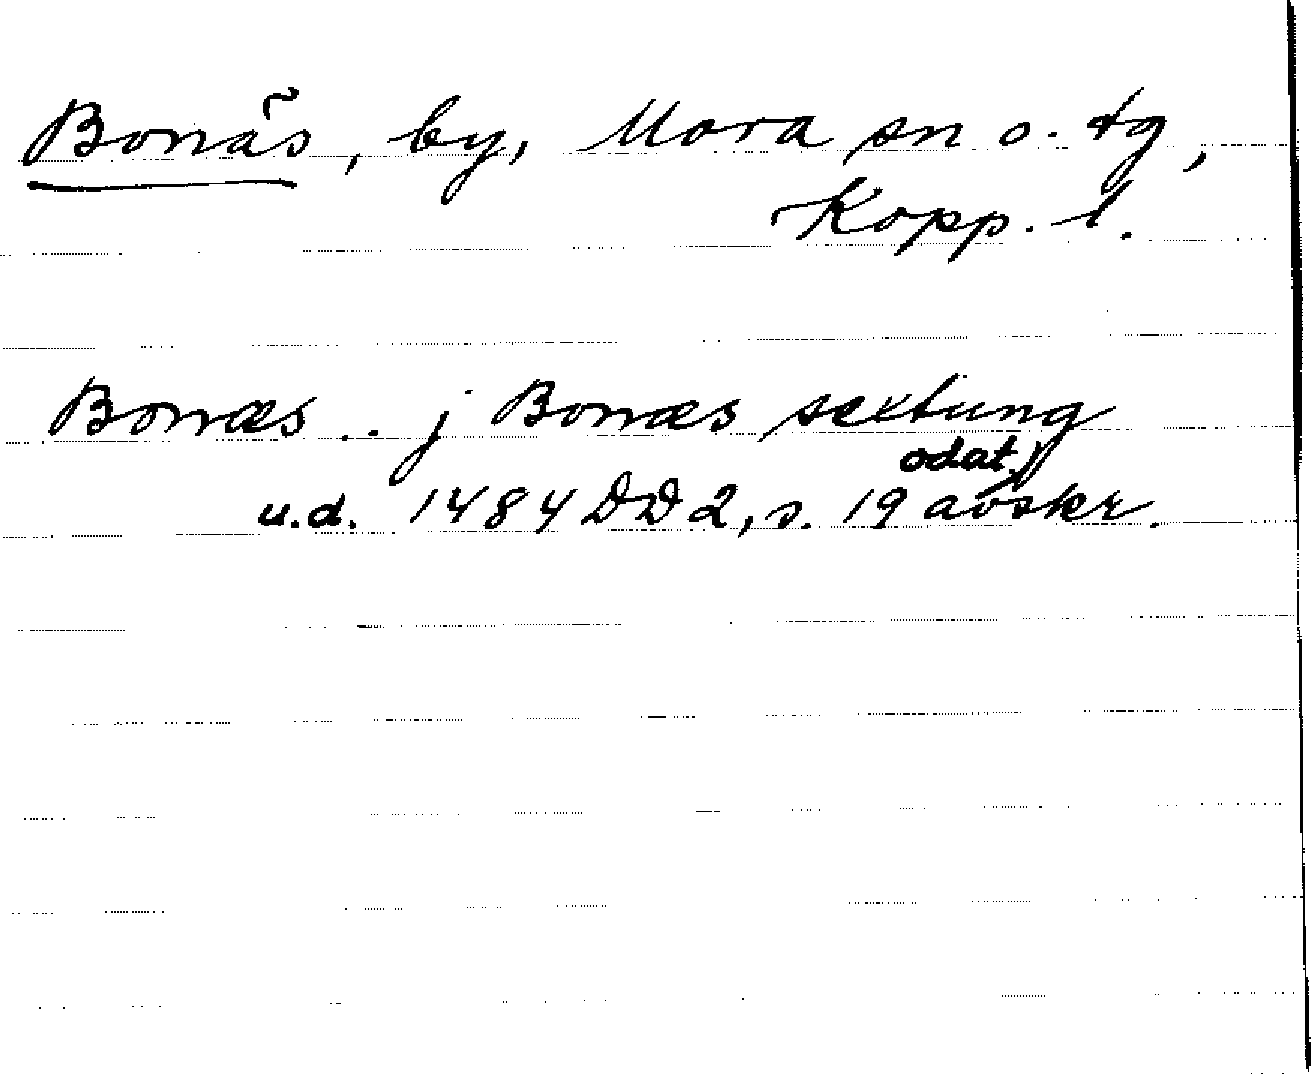 Bonäs, by, Mora sn o. tg,
Kopp. l.
Bonæs .. j Bonæs sextung
odat.
u.d. 1484 DD 2, s. 19 avskr.